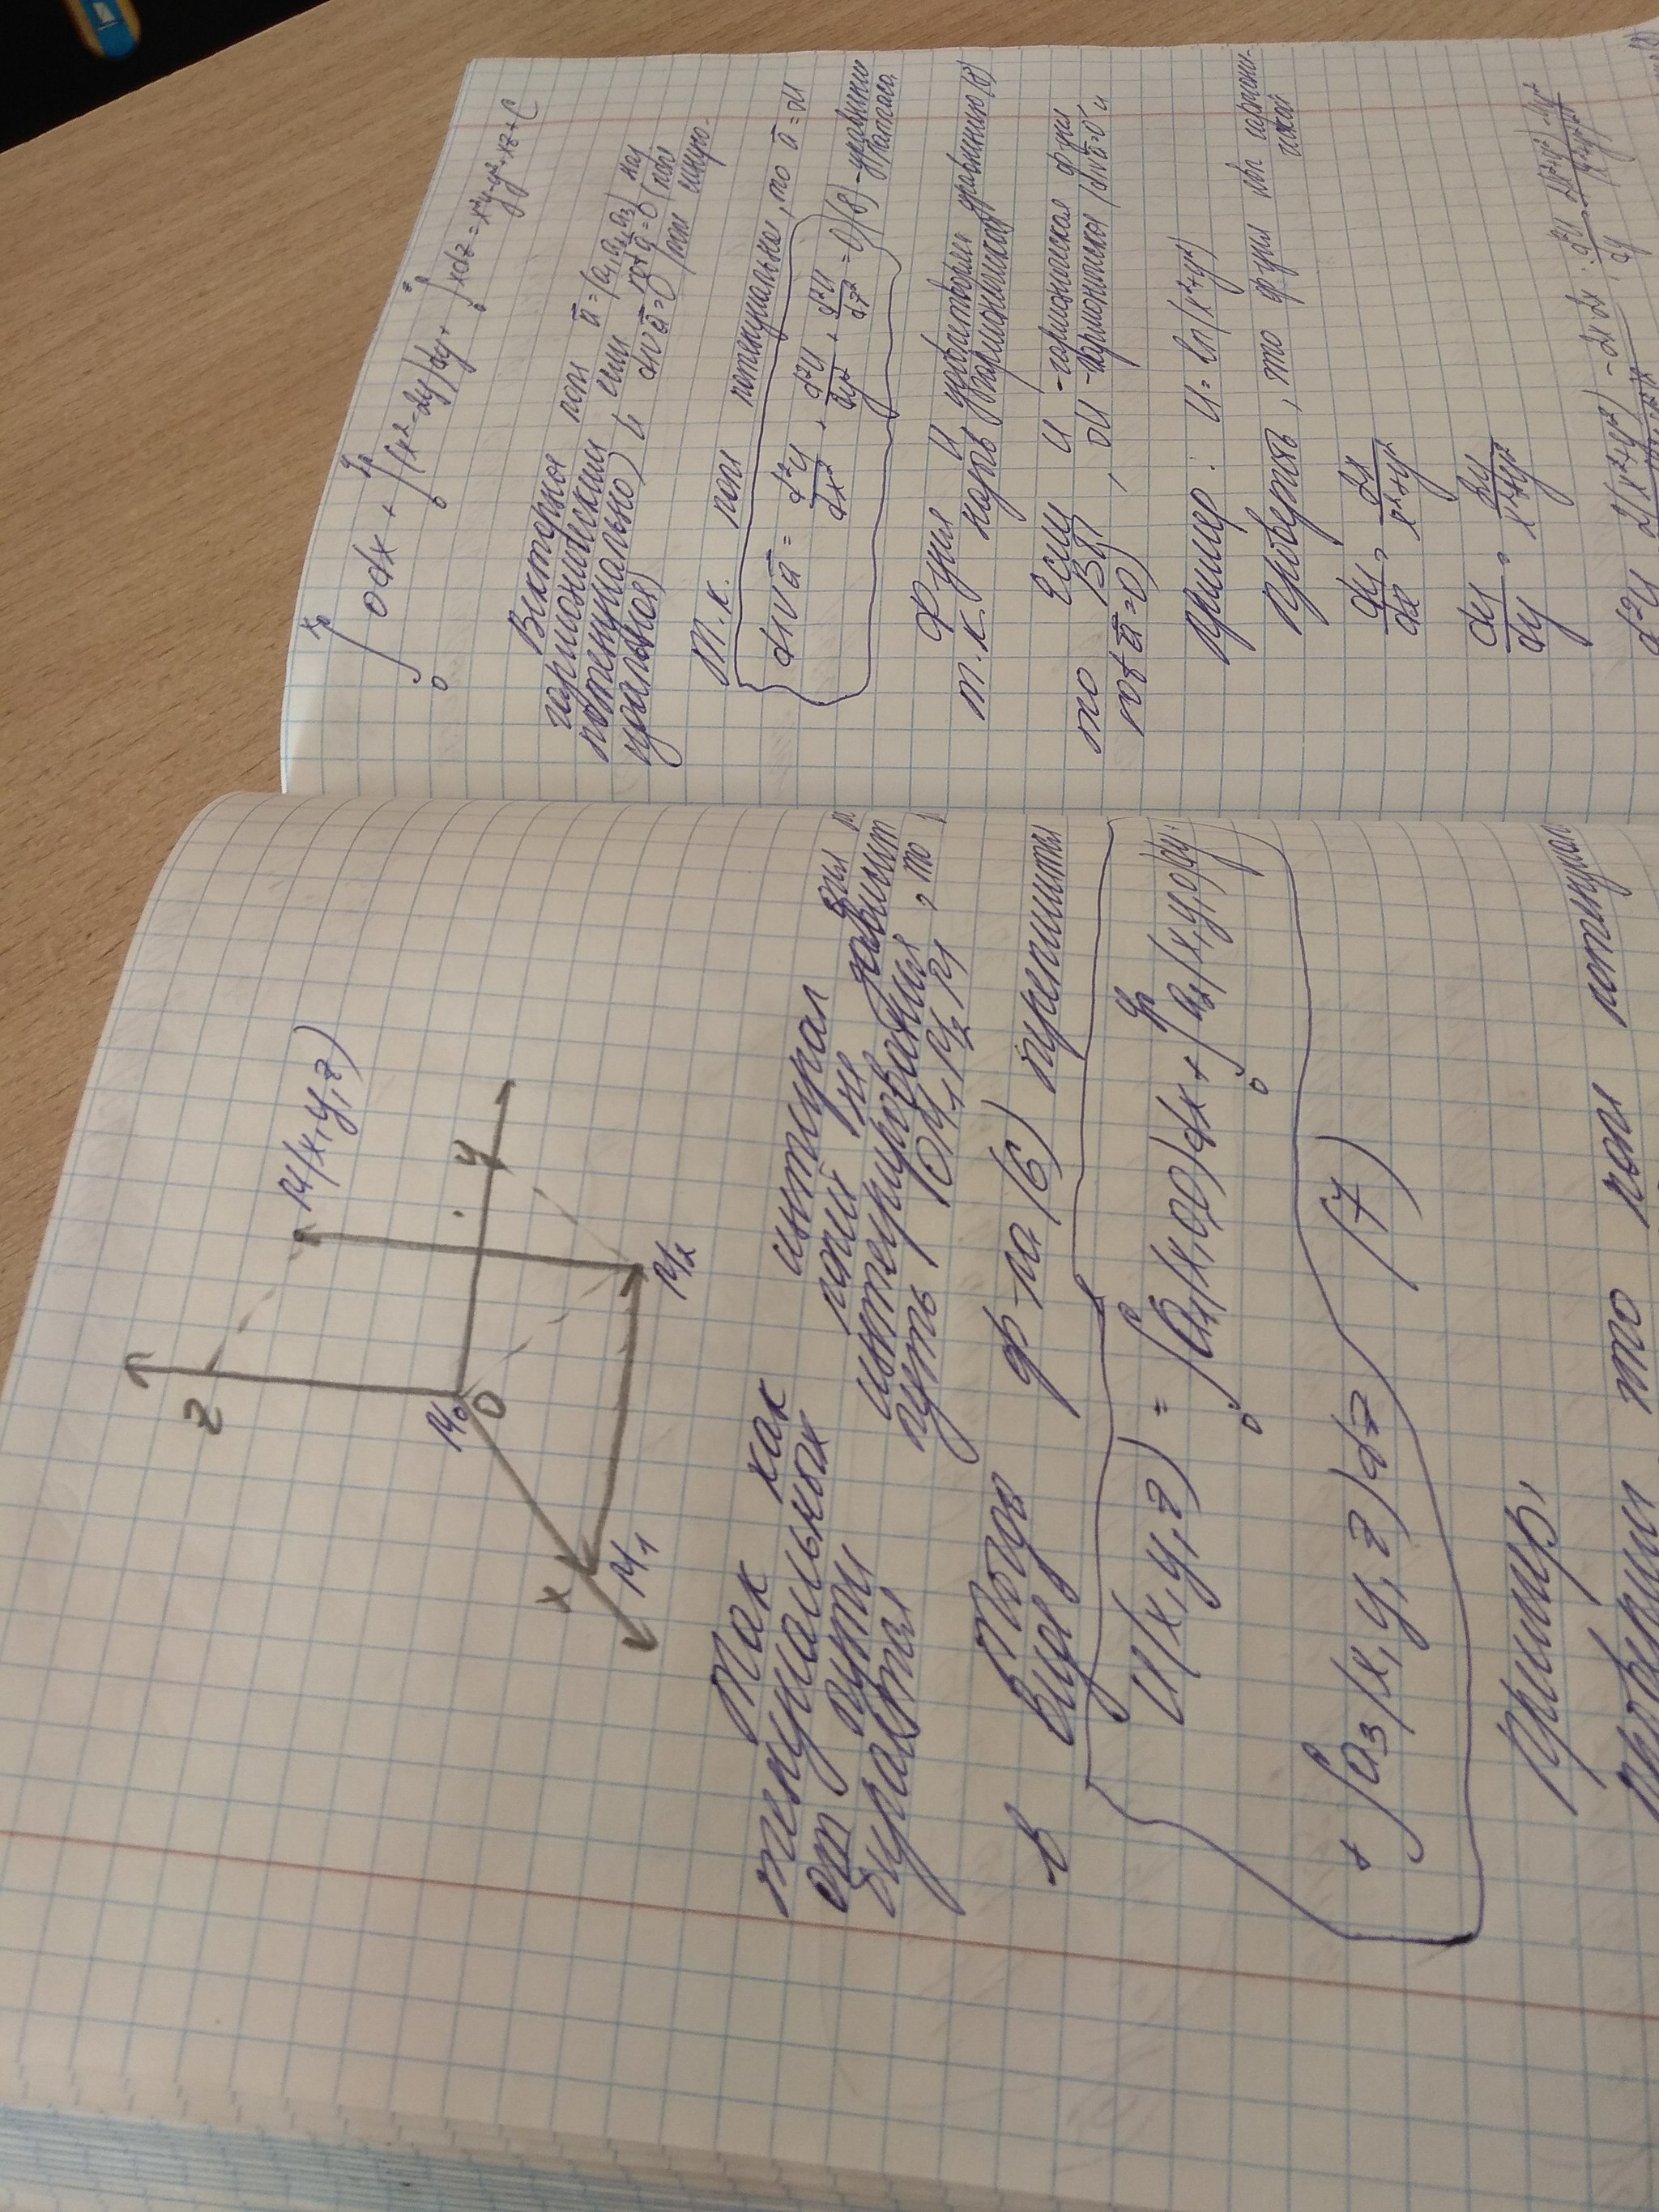 z
M(x,y,z)
M₀
0
y
x
M₁
M₂
Так как интеграл для п
тенциальных полей не зависит
от пути интегрирования, то
бирается путь OM₁M₂M
Тогда ф-ла (6) примет
в виде
U(x,y,z) = ∫₀ˣ a₁(x,0,0)dx + ∫₀ʸ a₂(x,y,0)dy
+ ∫ a₃(x,y,z)dz (7)
Пример,
что поле потенциал
∫₀ˣ 0dx + ∫₀ʸ (x²-2y)dy + ∫₀ᶻ xdz = x²y-y²+xz+C
Векторное поле ā=(a₁,a₂,a₃) наз
гармоническим если rot ā=0 (поле
потенциально) и div ā=0 (поле
Т.к. поле потенциально, то ā=∇U
div ā = d²U/dx² + d²U/dy² + d²U/dz² = 0 (8) - уравнение Лапласа
Функция U удовлетворяя уравнению (8)
т.к. назыв гармонической
Если U - гармоническая ф-ция
то ВП, ∇U - гармоническая (div ā=0 и
rot ā=0)
Пример: U = ln(x²+y²)
Проверить, что функция явл гармони-
ческой
dU/dx = 2x/(x²+y²)
dU/dy = 2y/(x²+y²)
d²U 2(x²+y²) - 2x·2x